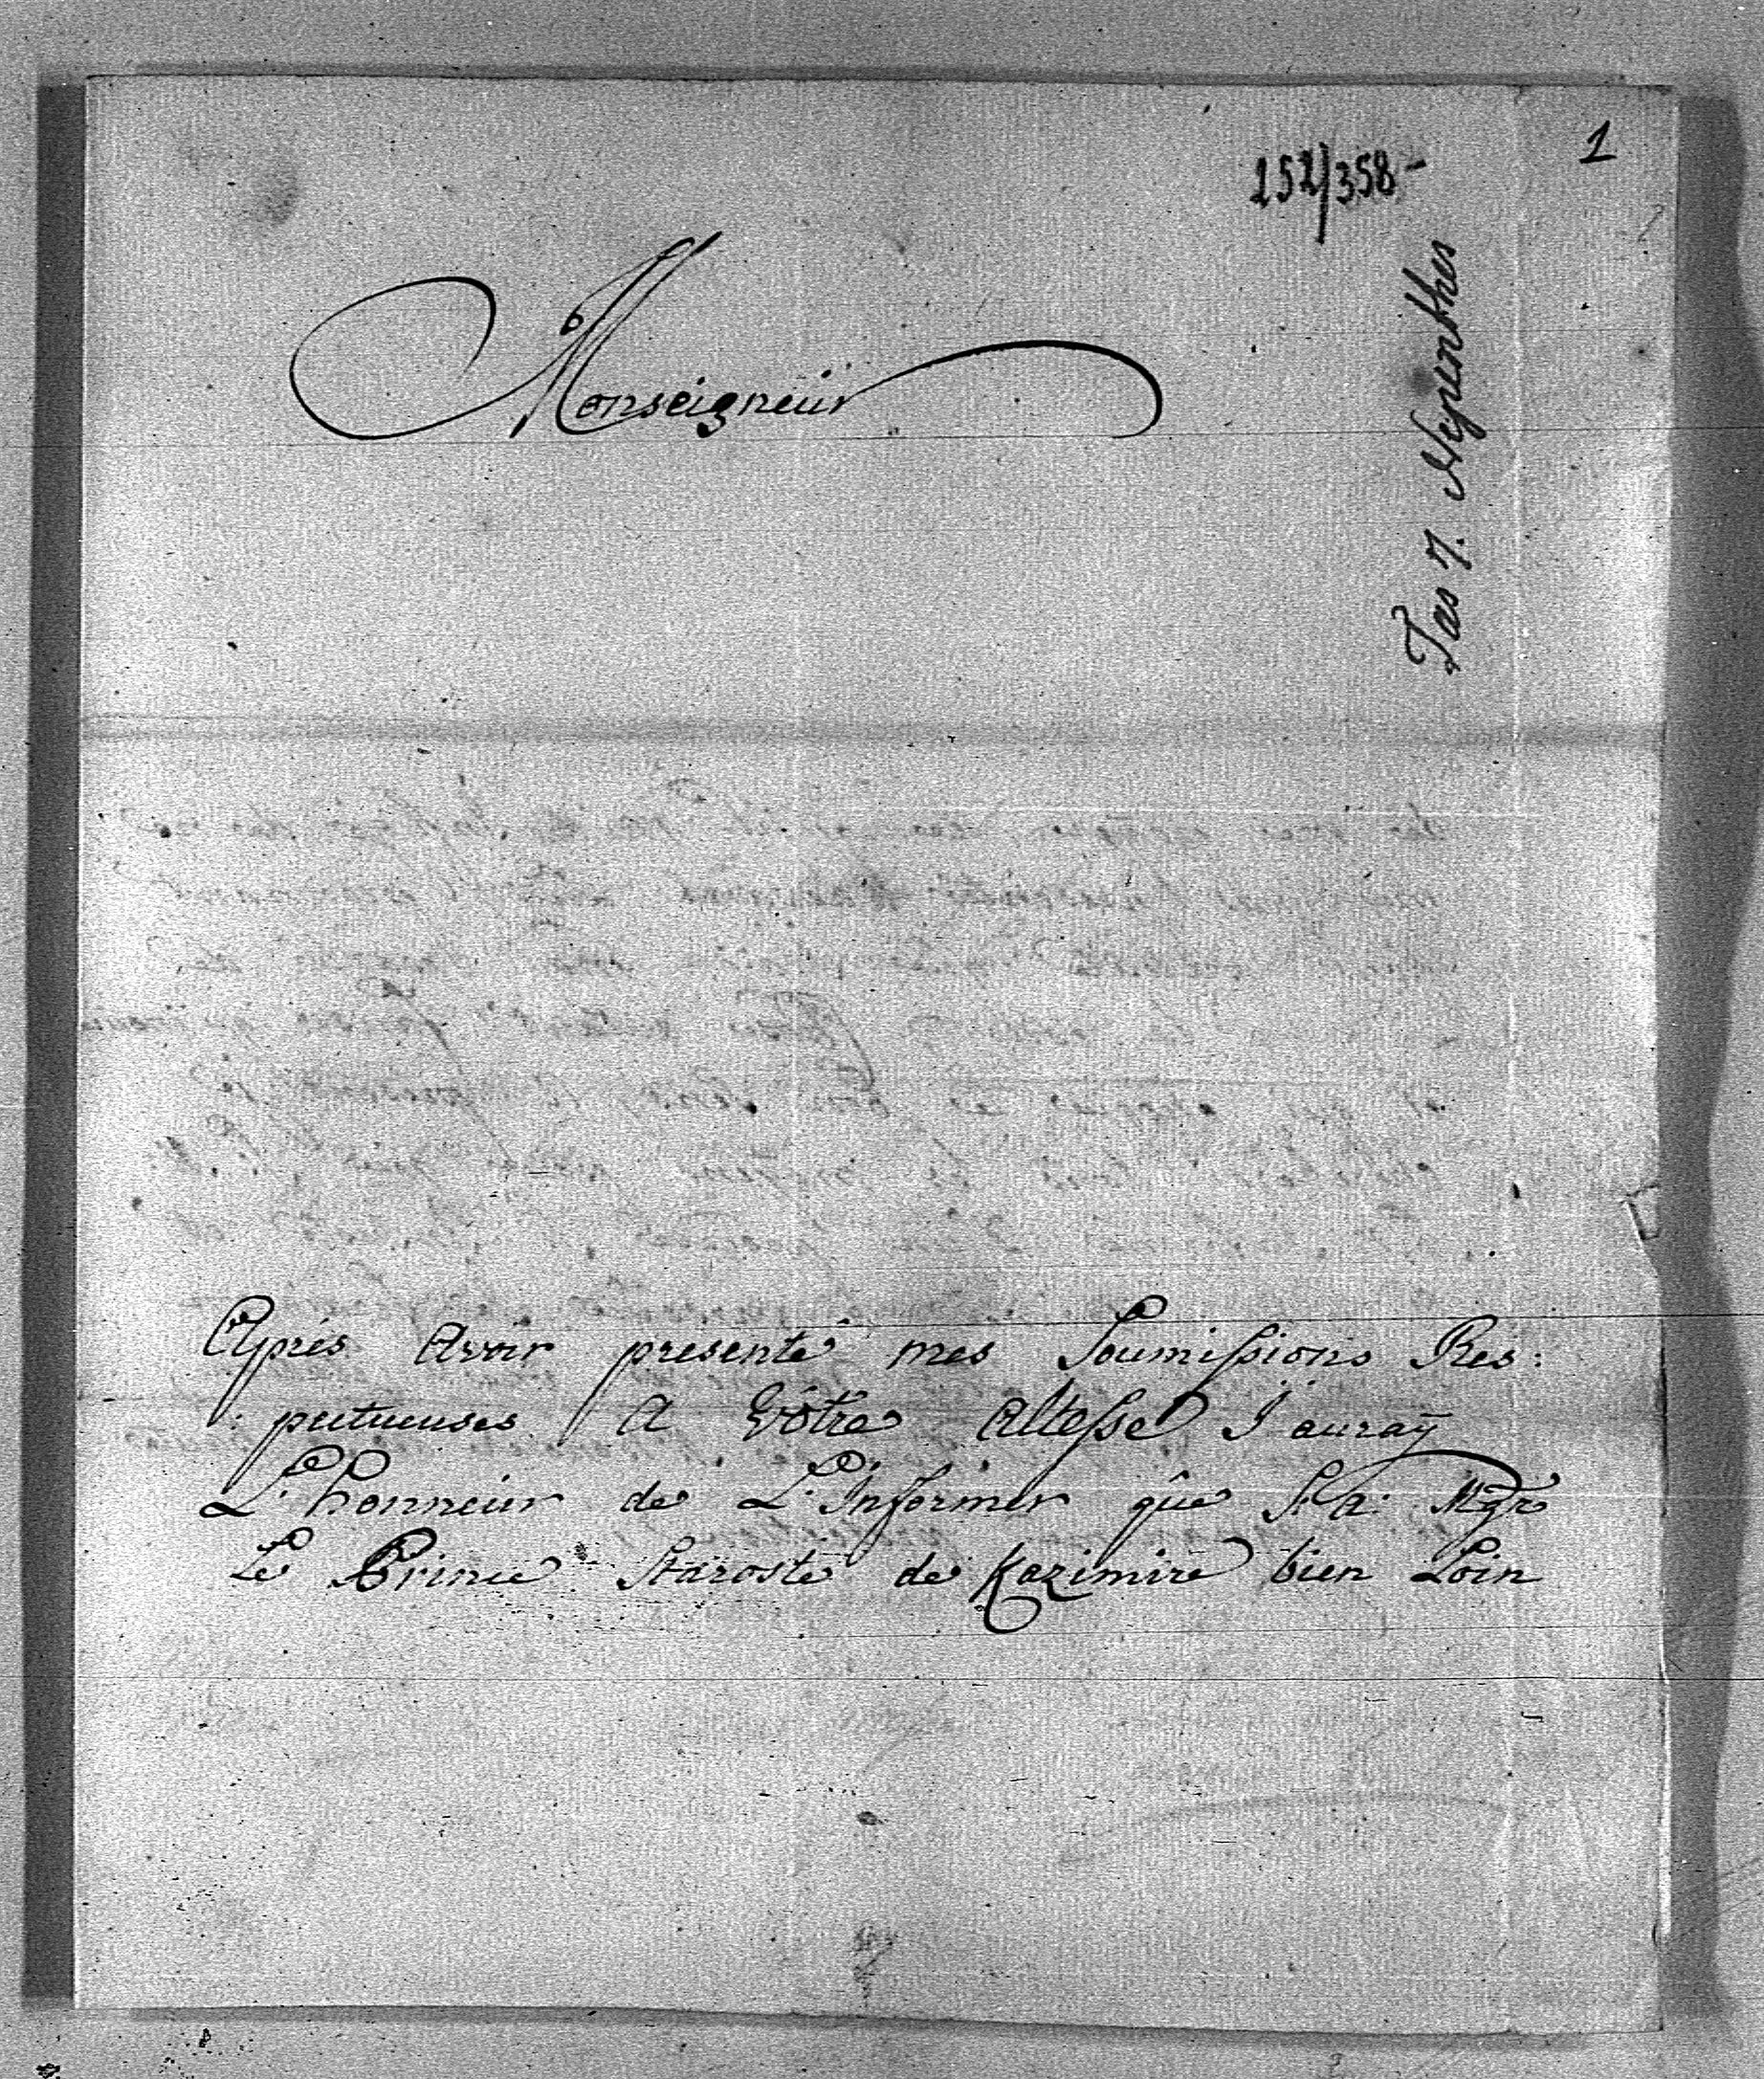 1
252/358-
Fas 7. Nepenthes
Monseigneur
Aprés Avoir presenté mes Soumissions Res:
:pectueuses A Vôtre Altesse J'auraÿ
L'honneur de L'Informer que S: A: Mgr
Le Prince Staroste de Kazimire bien Loin